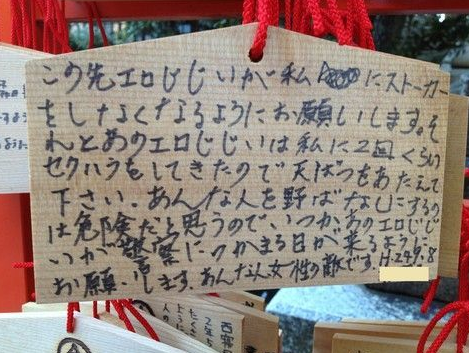 この先エロじじいが私にストーカー
をしなくなるようにお願いします。そ
れとあのエロじじいは私に2回くらい
セクハラをしてきたので天ばつをあたえて
下さい。あんな人を野ばなしにするの
は危険だと思うので、いつかあのエロじじ
いが警察につかまる日が来るように
お願いします。あんな人女性の敵です。H.24.9.8